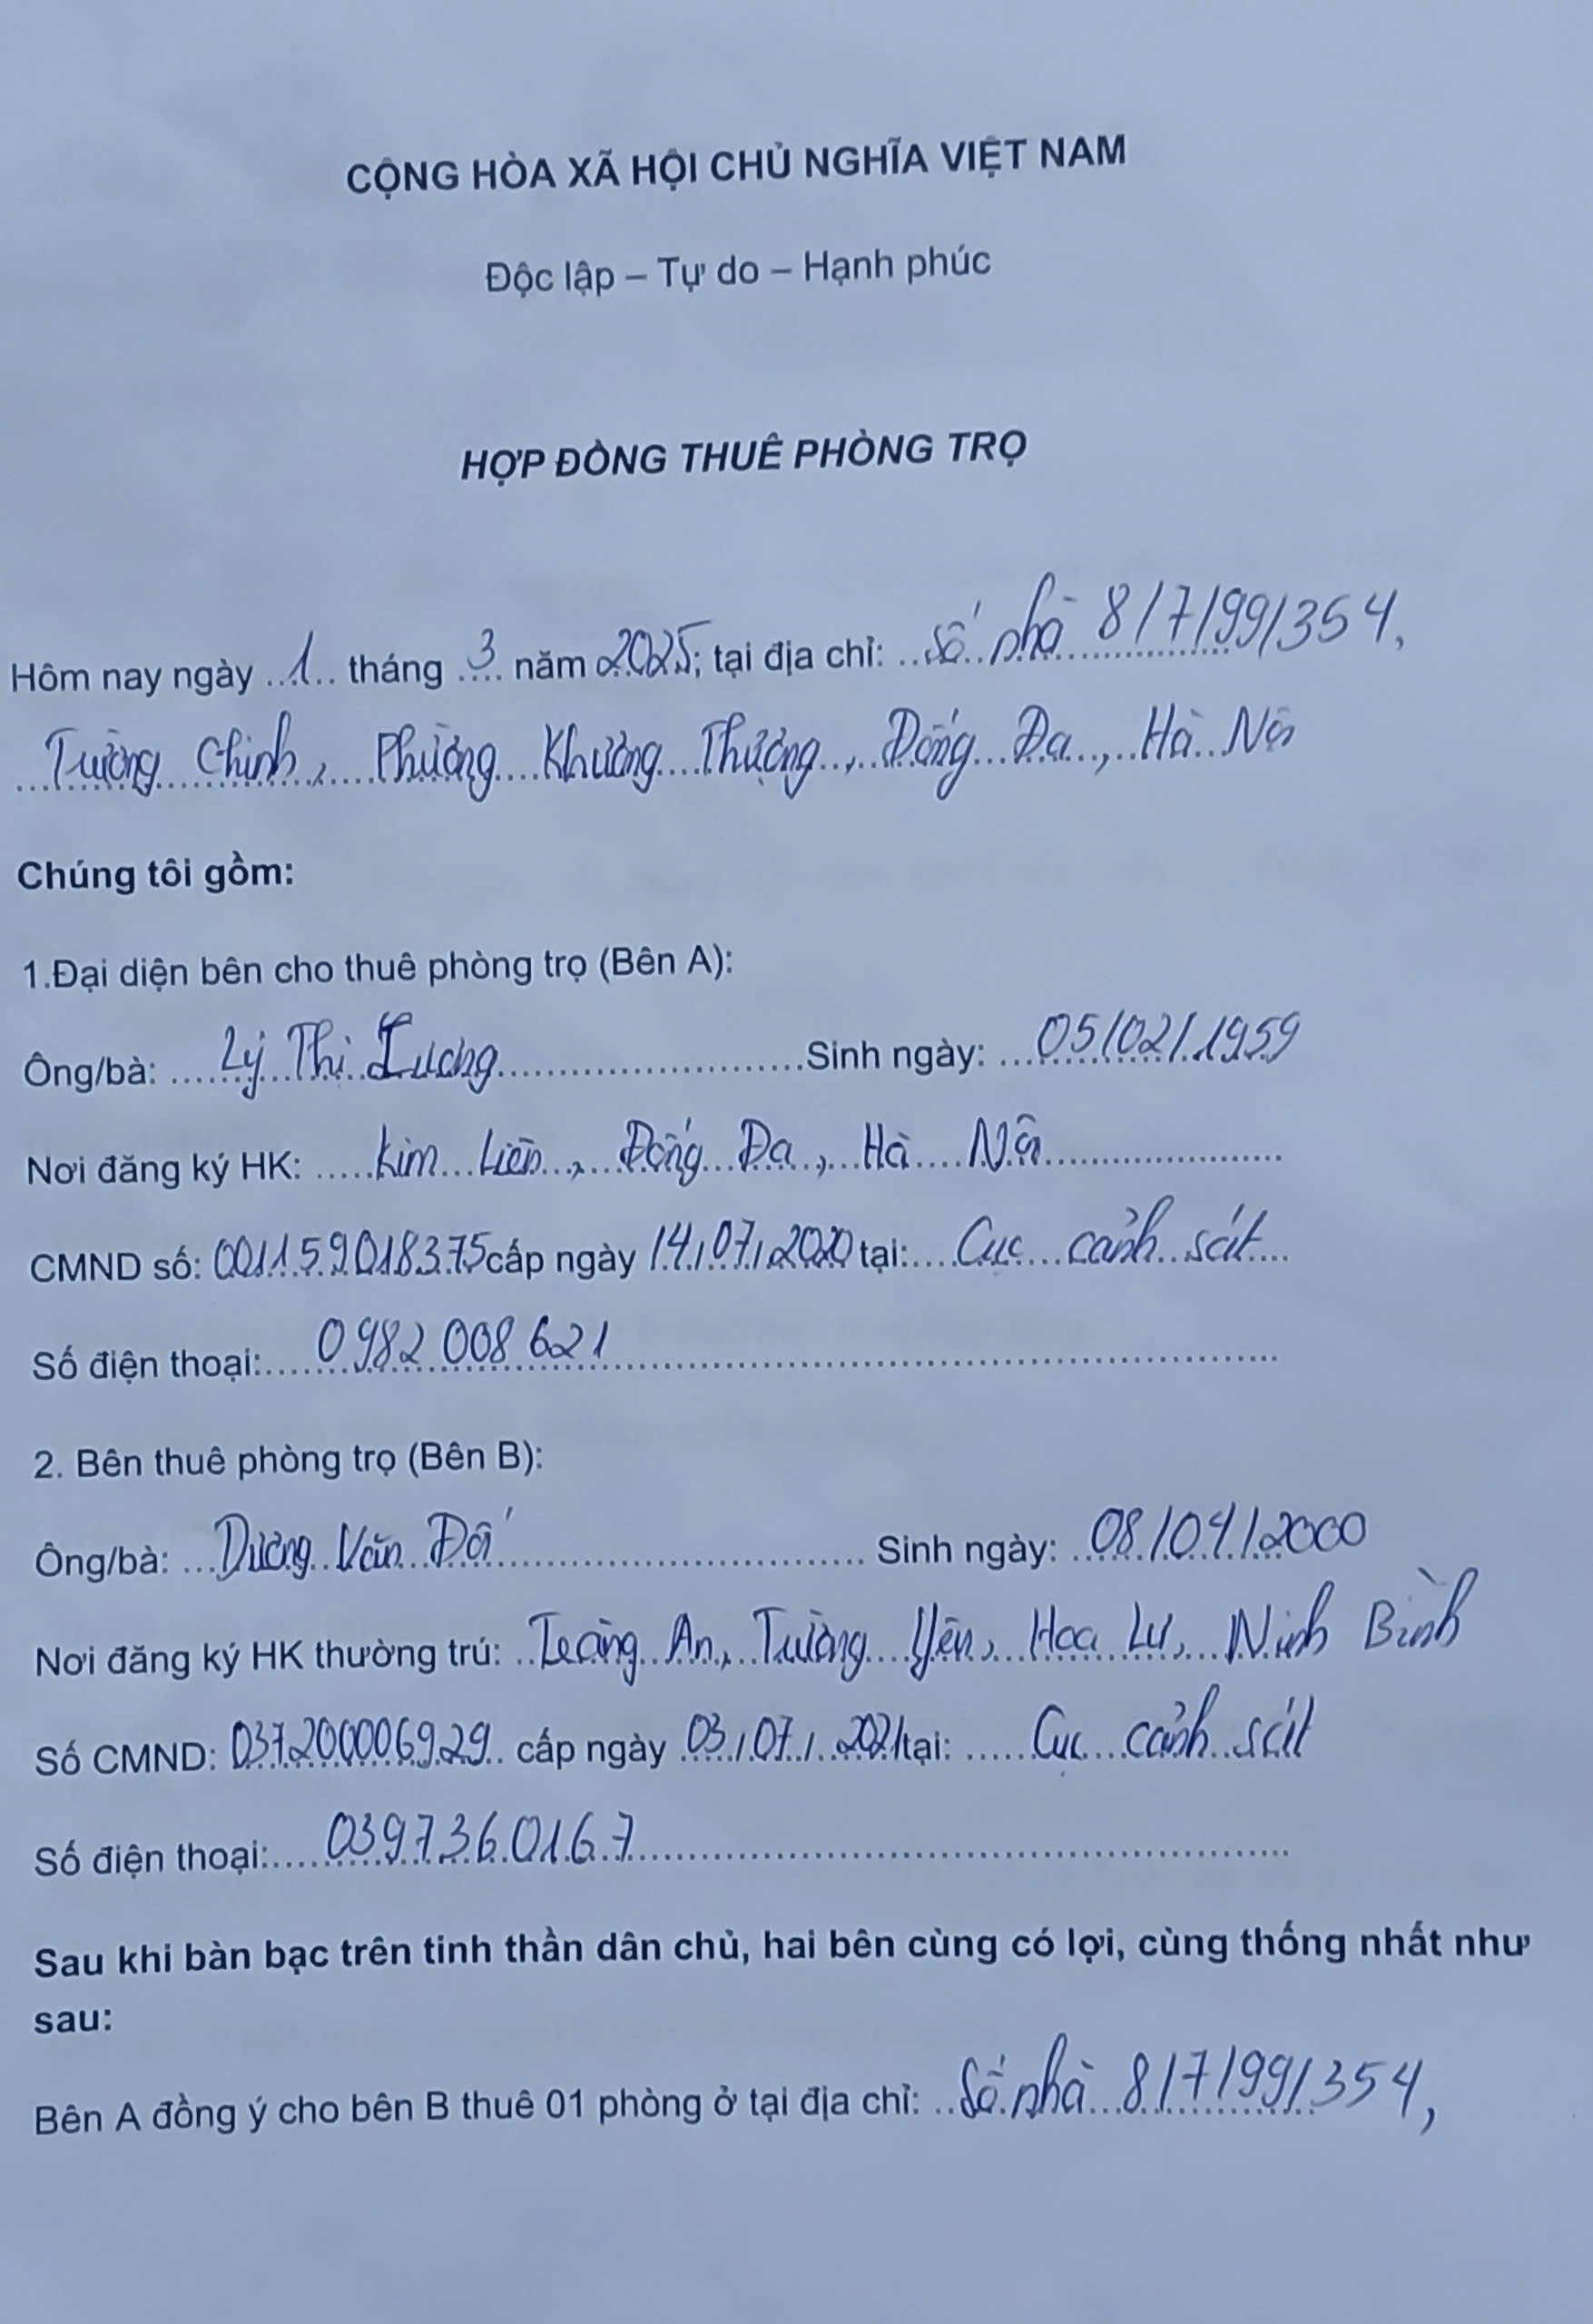 CỘNG HÒA XÃ HỘI CHỦ NGHĨA VIỆT NAM
Độc lập – Tự do – Hạnh phúc
HỢP ĐỒNG THUÊ PHÒNG TRỌ
Hôm nay ngày ..1.. tháng .3. năm 2025; tại địa chỉ: ..Số nhà 8/7/99/354,
Trường Chinh, Phường Khương Thượng, Đống Đa, Hà Nội
Chúng tôi gồm:
1.Đại diện bên cho thuê phòng trọ (Bên A):
Ông/bà: Lý Thị Lương Sinh ngày: 05/02/1959
Nơi đăng ký HK: Kim Liên, Đống Đa, Hà Nội
CMND số: 001159018375 cấp ngày 14/07/2020 tại: Cục cảnh sát
Số điện thoại: 0982 008 621
2. Bên thuê phòng trọ (Bên B):
Ông/bà: Dương Văn Đố Sinh ngày: 08/04/2000
Nơi đăng ký HK thường trú: Tràng An, Trường Yên, Hoa Lư, Ninh Bình
Số CMND: 037200006929 cấp ngày 03/07/2021 tại: Cục cảnh sát
Số điện thoại: 0397360167
Sau khi bàn bạc trên tinh thần dân chủ, hai bên cùng có lợi, cùng thống nhất như
sau:
Bên A đồng ý cho bên B thuê 01 phòng ở tại địa chỉ: Số nhà 8/7/99/354,